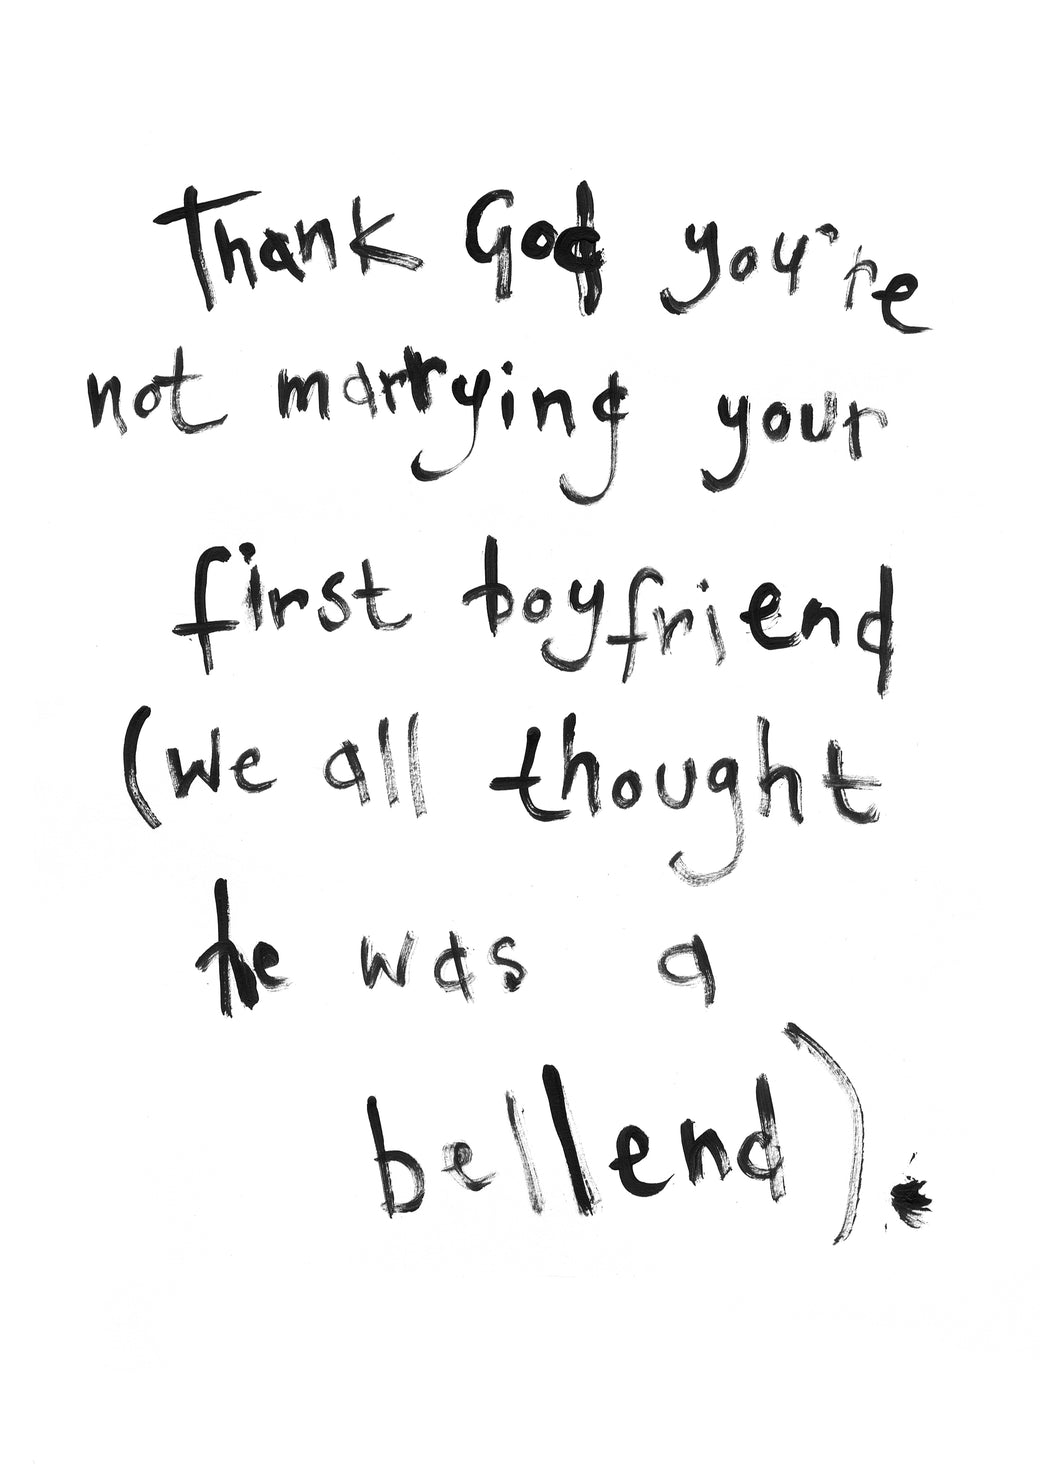 Thank God you're
not marrying your
first boyfriend
(we all thought
he was a
bellend).